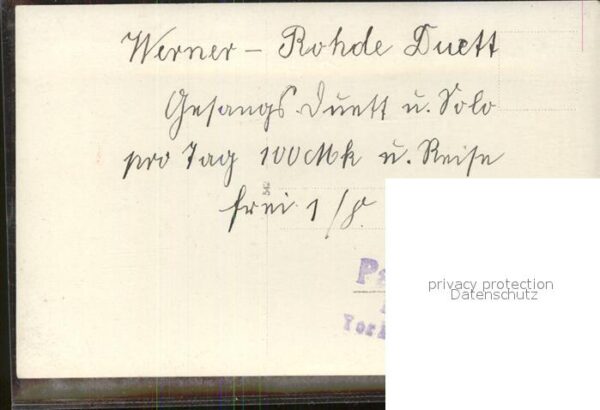 Werner – Rohde Duett
Gesangs-Duett u. Solo
pro Tag 100 Mk u. Reise
frei 1/
privacy protection
Datenschutz